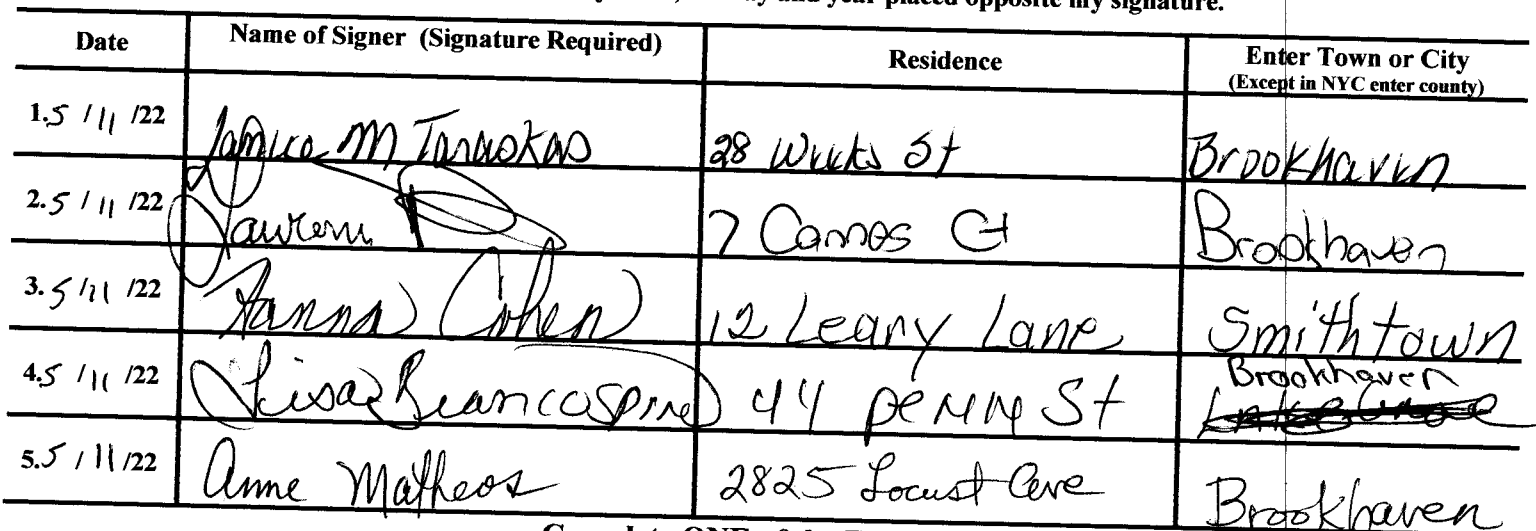 day and year placed opposite my signature.
Date Name of Signer (Signature Required) Residence Enter Town or City
(Except in NYC enter county)
1.5 / 11 /22 Janice M Taraskas 28 Weeks St Brookhaven
2.5 / 11 /22 Lauren 7 Camos Ct Brookhaven
3.5 /11 /22 Hanna Cohen 12 Leary Lane Smithtown
4.5 /11 /22 Lisa Biancospino 44 Penny St Brookhaven
5.5 / 11 /22 Anne Matheos 2825 Locust Ave Brookhaven